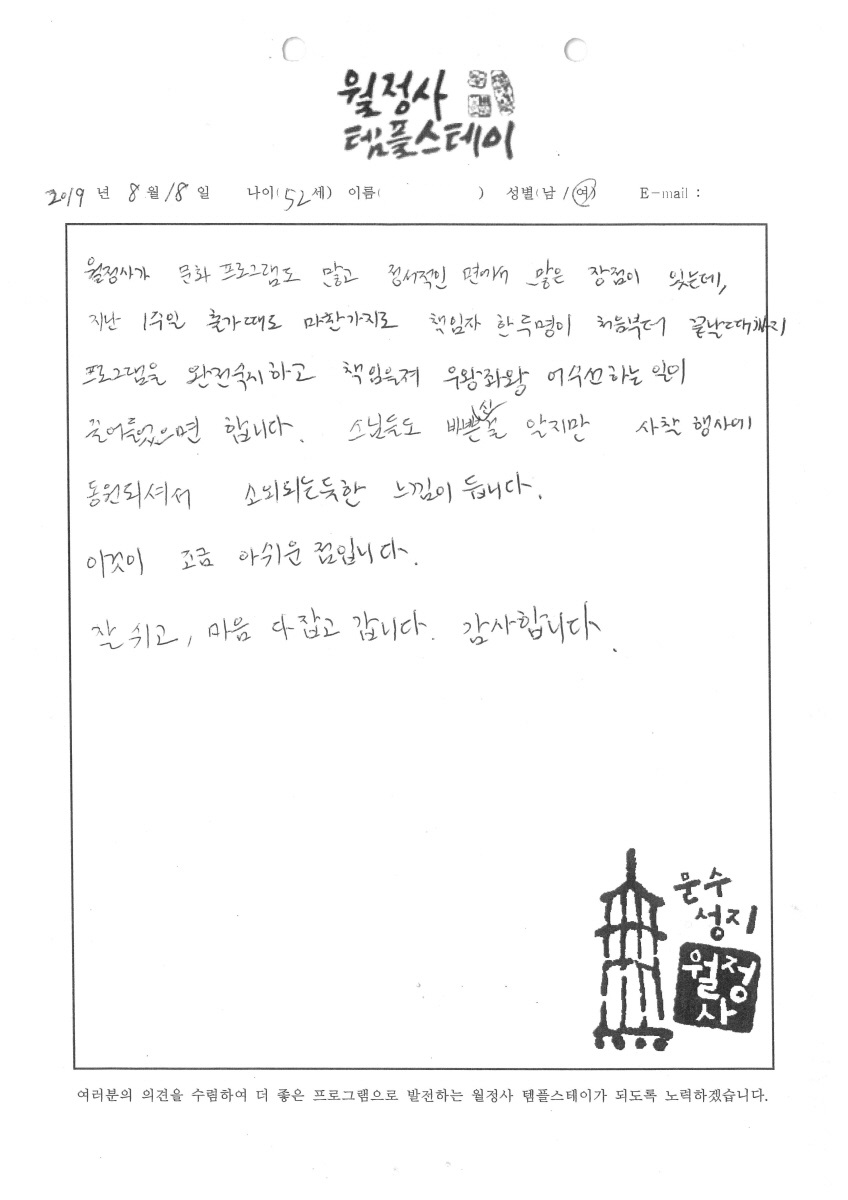 월정사
템플스테이
2019 년 8 월 18 일 나이(52세) 이름( ) 성별(남 / 여) E-mail :
월정사가 문화 프로그램도 많고 정서적인 면에서 많은 장점이 있는데,
지난 1주일 출가때도 마찬가지로 책임자 한두명이 처음부터 끝날때까지
프로그램을 완전숙지하고 책임을져 우왕좌왕 어수선하는 일이
줄어들었으면 합니다. 스님들도 바쁘신줄 알지만 사찰 행사에
동원되셔서 소외되는듯한 느낌이 듭니다.
이것이 조금 아쉬운 점입니다.
잘 쉬고, 마음 다잡고 갑니다. 감사합니다.
문수
성지
월정
사
여러분의 의견을 수렴하여 더 좋은 프로그램으로 발전하는 월정사 템플스테이가 되도록 노력하겠습니다.